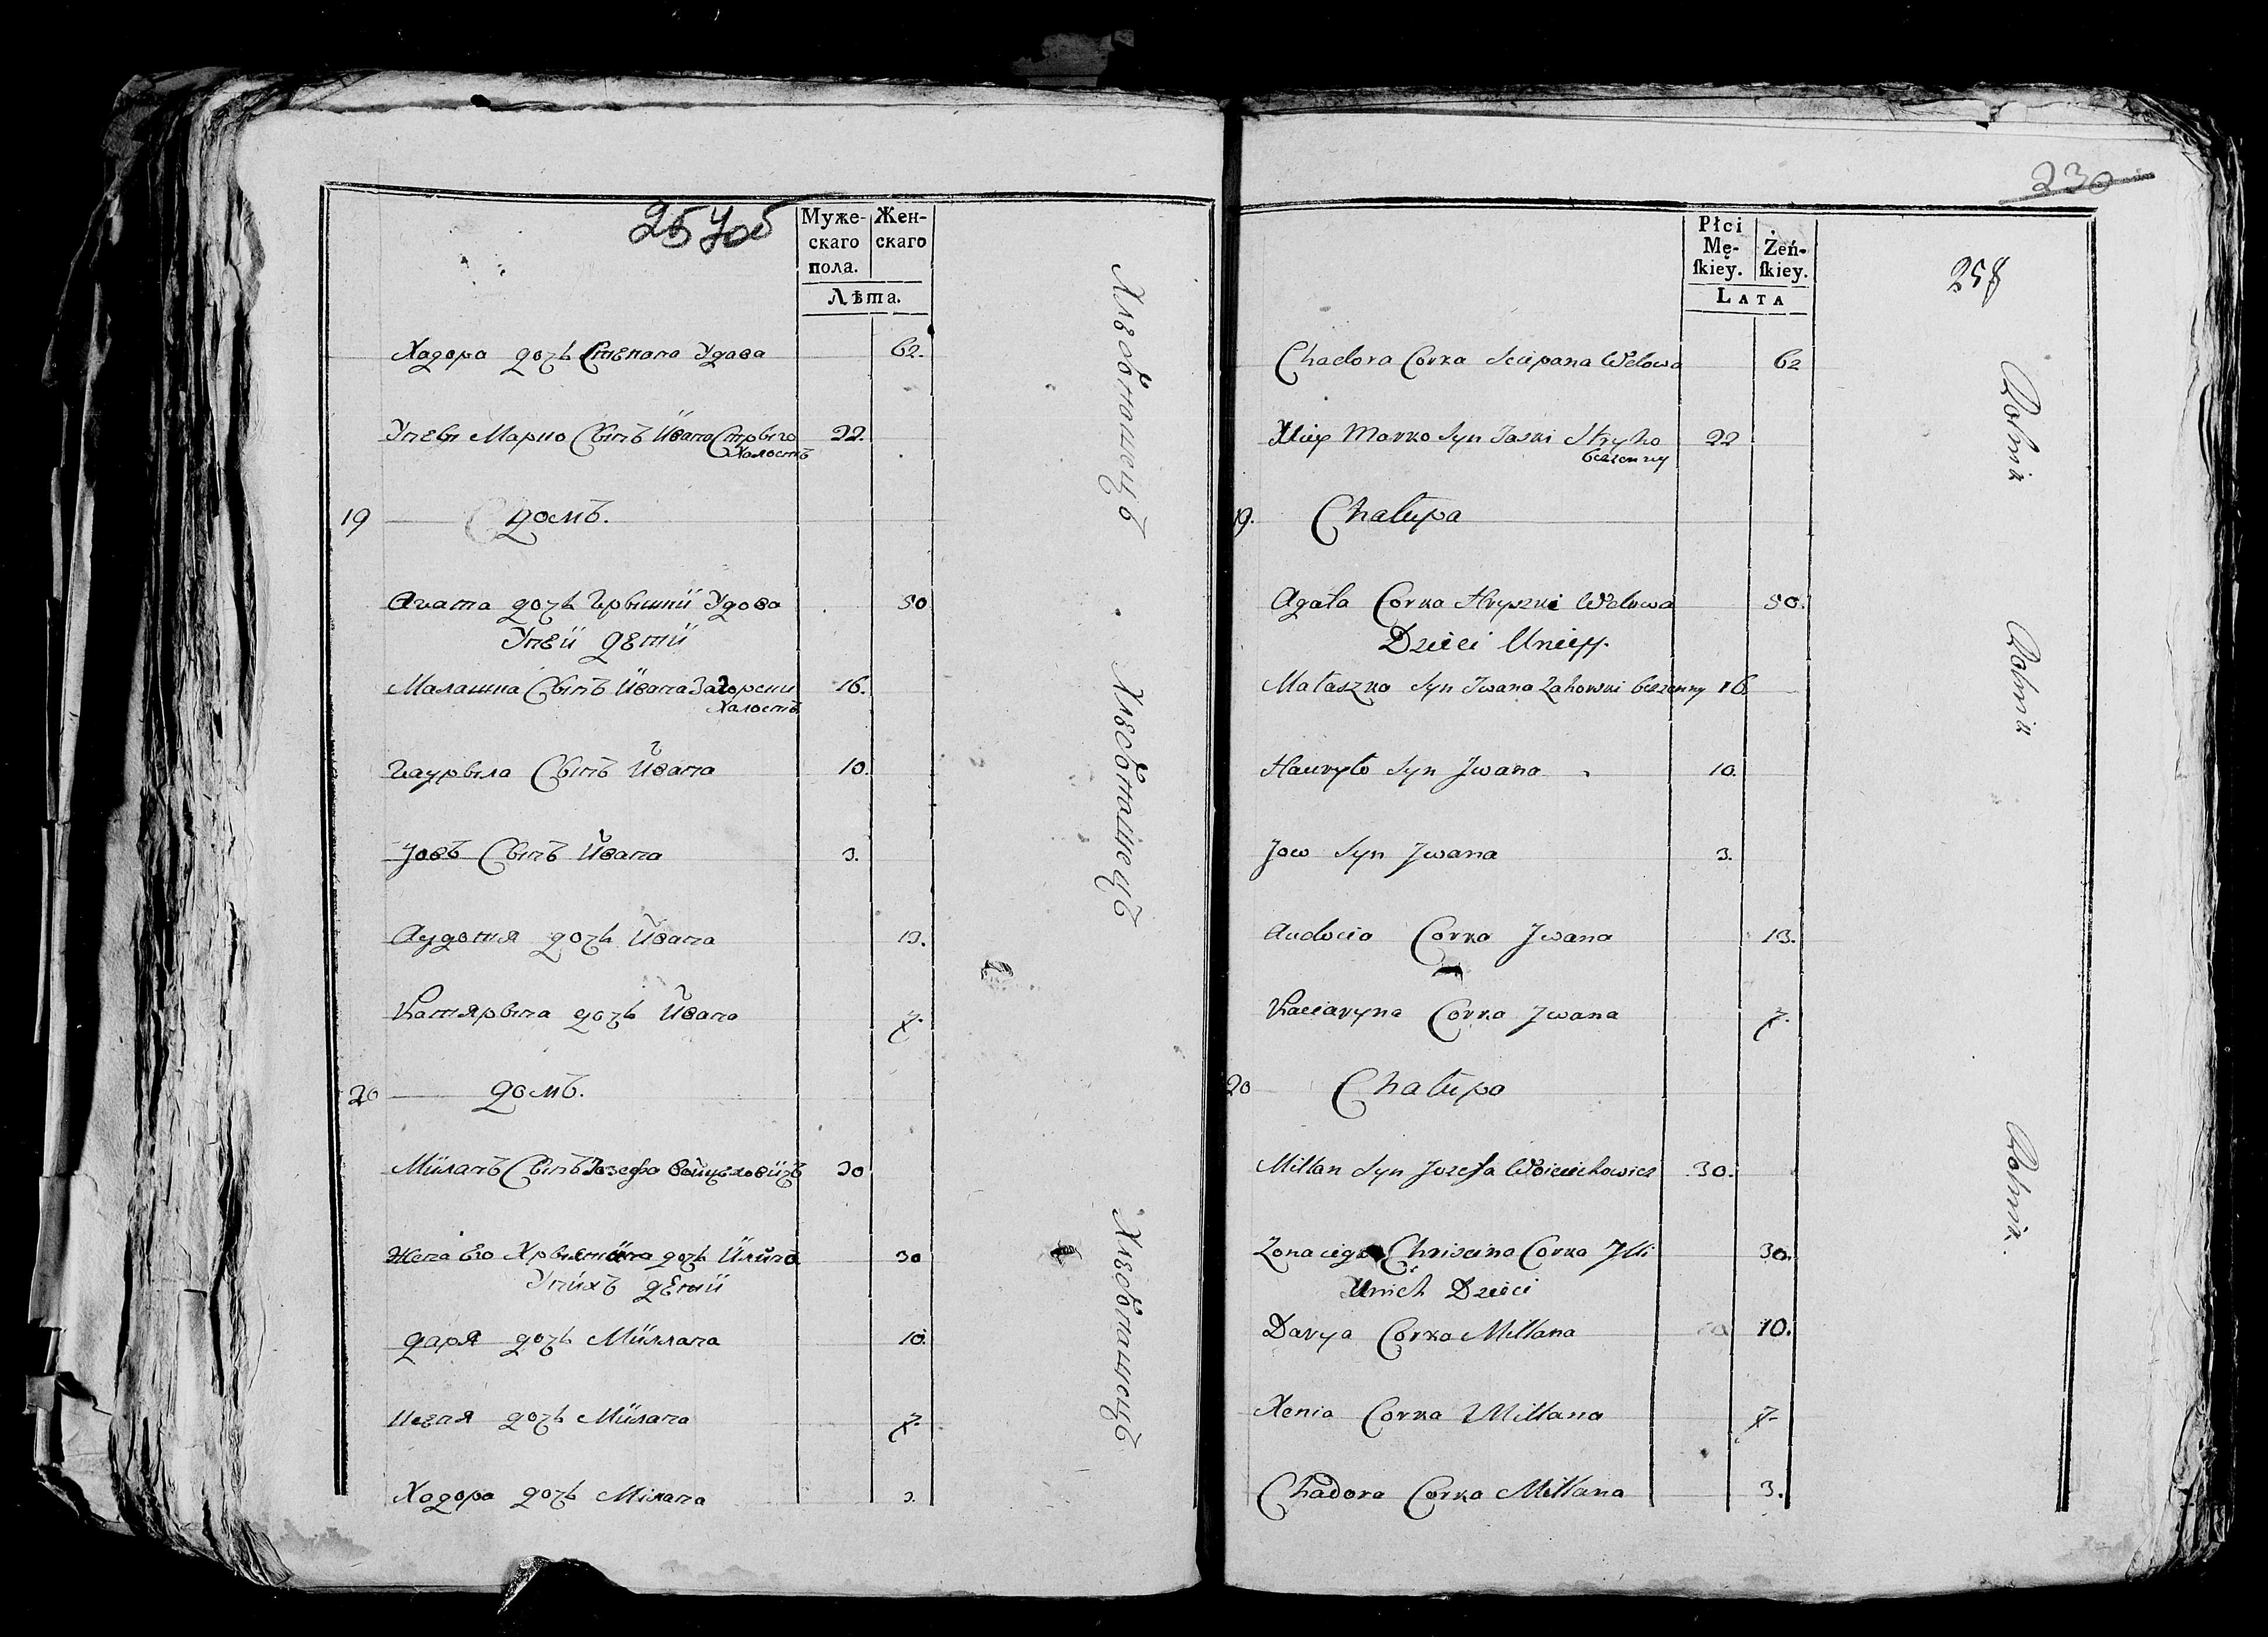 257об
Муже-
скаго
пола.
Жен-
скаго
Лѣта.
Хадора дочь Степана Удова 62.
Унеи Марко Сынъ Ивана Стрыго 22.
Халостъ
19 домъ.
Агата дочь Грышки Удова 50
Унеи дети
Малашка Сынъ Ивана Загорски 16.
Халостъ
Гаурыла Сынъ Ивана 10.
Іовъ Сынъ Ивана 3.
Аудотя дочь Ивана 13.
Катярына дочь Ивана 7.
20 домъ.
Миланъ Сынъ Іозефа Войцеховичъ 30
Жена Его Хрыстина дочь 30
Унихъ дети
даря дочь Миллана 10.
дочь Милана 7.
Хадора дочь Мілана 3.
Хлебопашецъ
Хлебопашецъ
Хлебопашецъ
230
Płci
Mę-
ſkiey.
Żeń-
ſkiey.
LATA
Chadora Corka Sciepana Wdowa 62
Marko Syn Jaski Stryho 22
bezzenny
19. Chałupa
Agata Corka Hryszki Wdowa 50.
Dzieci Uniey.
Małaszko Syn Jwana bezzenny 16.
Hauryło Syn Jwana 10.
Jow Syn Jwana 3.
Audocia Corka Jwana 13.
Kaciaryna Corka Jwana 7.
20 Chałupa
Millan Syn Jozefa Woiciechowicz 30.
Zona iego Chriscina Corka Jlli 30.
Unich Dzieci
Darya Corka Millana 10.
Xenia Corka Millana 7.
Chadora Corka Millana 3.
Rolnik
Rolnik
Rolnik.